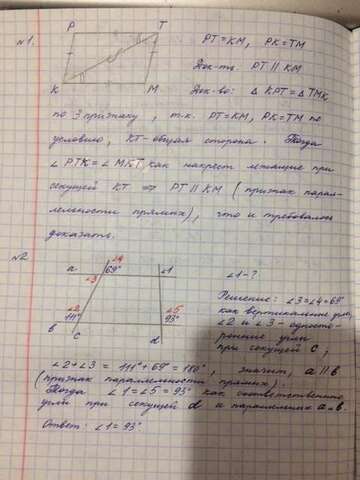 P T
K M
№1. PT = KM, PK = TM
Док-ть PT || KM
Док-во: △ KPT = △ TMK
по 3 признаку, т.к. PT = KM, PK = TM по
условию, KT - общая сторона. Тогда
∠ PTK = ∠ MKT, как накрест лежащие при
секущей KT ⇒ PT || KM (признак парал-
лельности прямых), что и требовалось
доказать.
№2
∠4
a 69° ∠1
∠3
∠2 ∠5
в 111° 93°
c d
∠1 - ?
Решение: ∠3 = ∠4 = 69°
как вертикальные углы,
∠2 и ∠3 - односто-
ронние углы
при секущей c,
∠2 + ∠3 = 111° + 69° = 180°, значит, a || в
(признак параллельности прямых).
Тогда ∠1 = ∠5 = 93° как соответственные
углы при секущей d и параллельных a и в.
Ответ: ∠1 = 93°